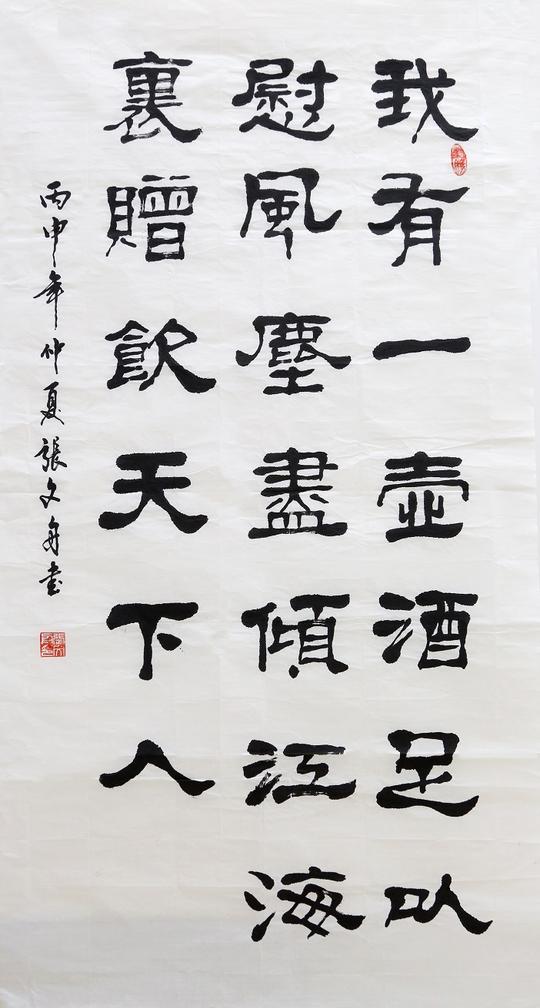 我有一壺酒足以
慰風塵盡傾江海
裏贈飲天下人
丙申年仲夏張文舟書